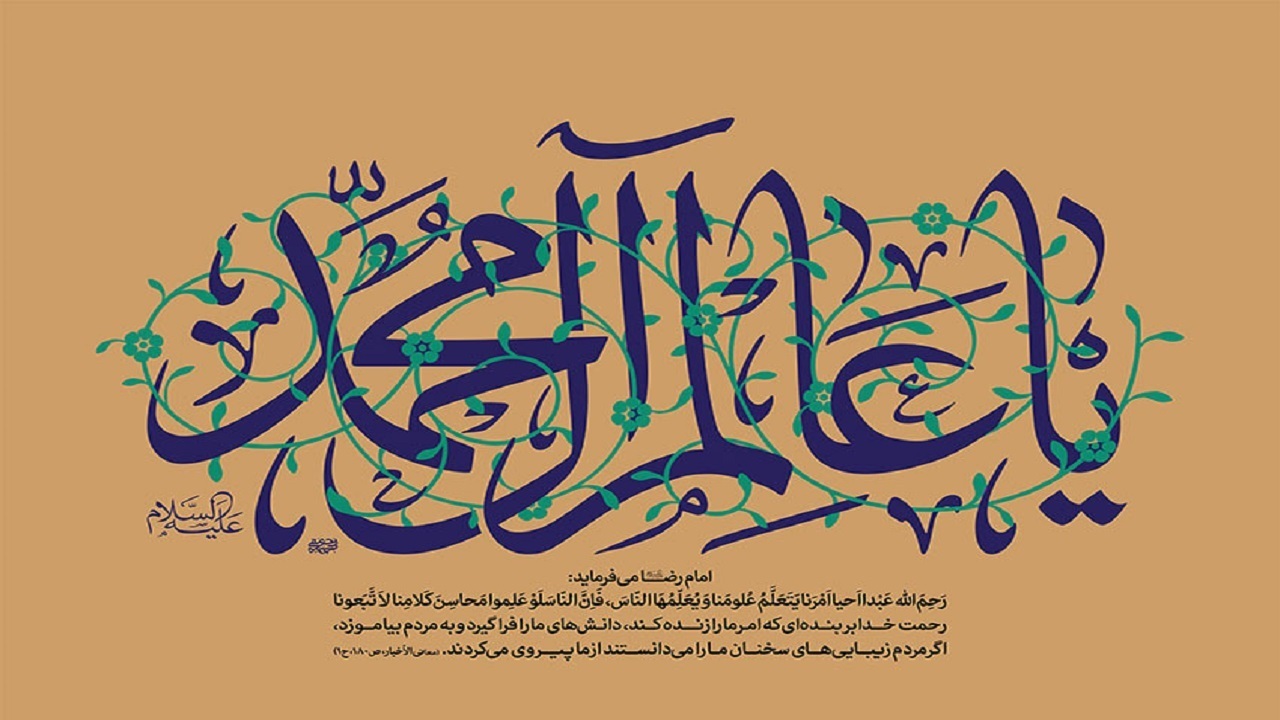 یا عالم آل محمّد
علیه السّلام
امام رضا می‌فرماید:
رَحِمَ اللّه عَبْدا اَحیا اَمْرَنا یَتَعَلَّمُ عُلومَنا وَ یُعَلِّمُهَا النّاسَ، فَاِنَّ النّاسَ لَوْ عَلِموا مَحاسِنَ کَلامِنا لاَ تَّبَعونا
رحمت خدا بر بنده‌ای که امر ما را زنده کند، دانش‌های ما را فرا گیرد و به مردم بیاموزد،
اگر مردم زیبایی‌های سخنان ما را می‌دانستند از ما پیروی می‌کردند. (معانی الأخبار، ص۱۸۰، ح۱)